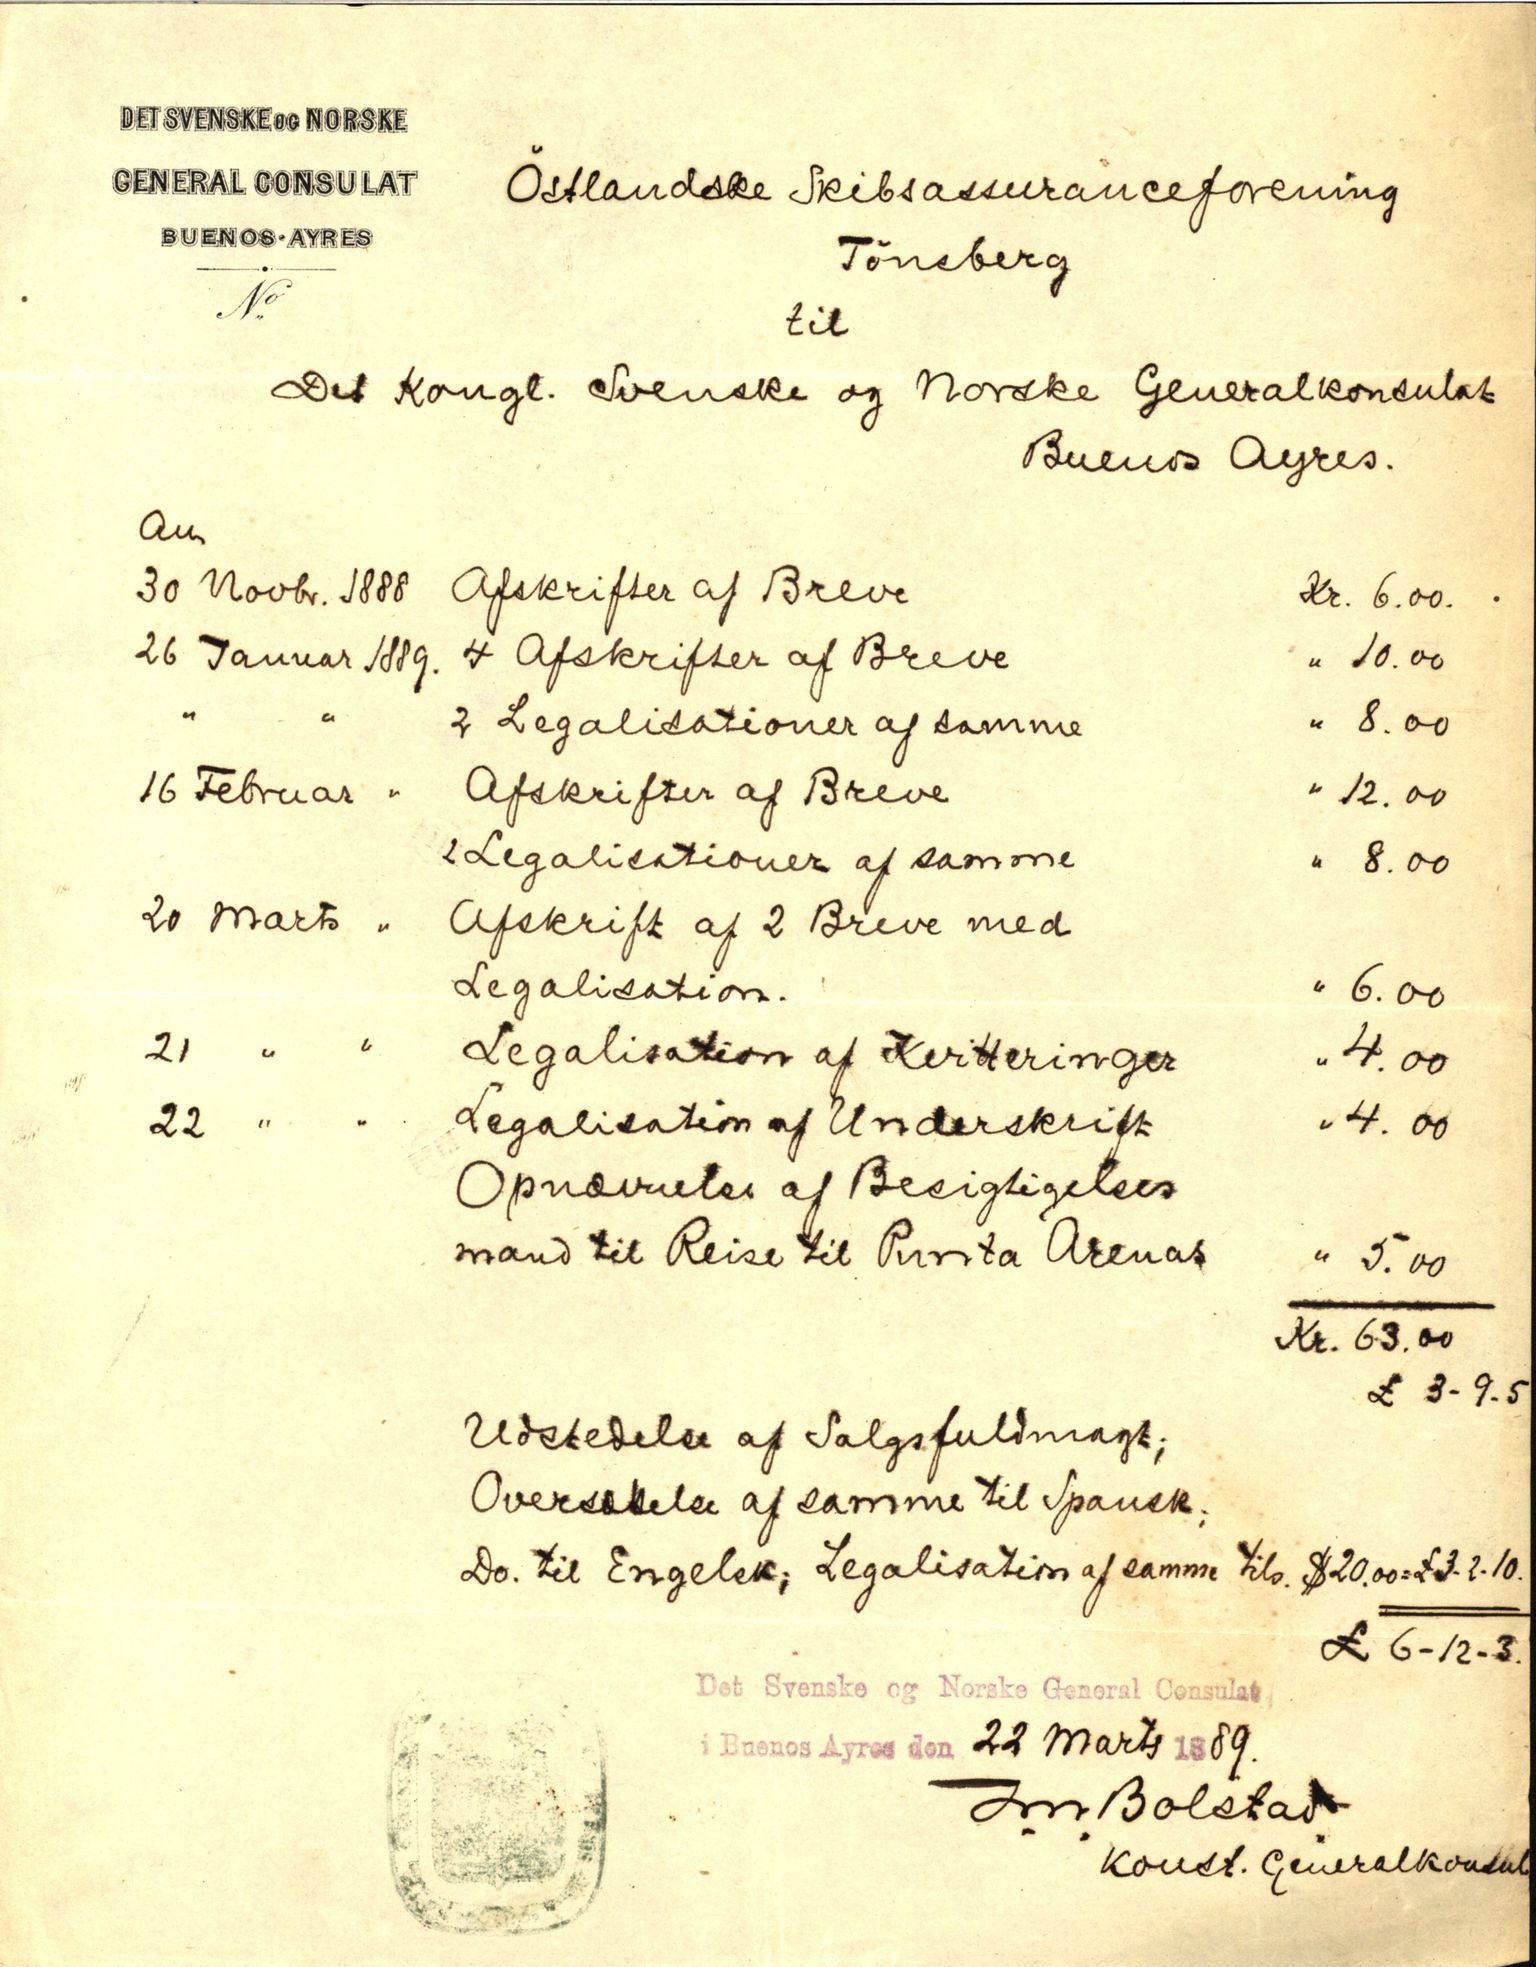 DET SVENSKE OG NORSKE
GENERAL CONSULAT
BUENOS·AYRES
No.
Östlandske Skibsassuranceforening
Tönsberg
til
Det Kongl. Svenske og Norske Generalkonsulat
Buenos Ayres.
An
30 Novbr. 1888 Afskrifter af Breve Kr. 6.00.
26 Januar 1889. 4 Afskrifter af Breve " 10.00
" " 2 Legalisationer af samme " 8.00
16 Februar " Afskrifter af Breve " 12.00
2 Legalisationer af samme " 8.00
20 Marts " Afskrift af 2 Breve med
Legalisation. " 6.00
21 " " Legalisation af Kvitteringer " 4.00
22 " " Legalisation af Underskrift " 4.00
Opnævnelse af Besigtigelses
mand til Reise til Punta Arenas " 5.00
Kr. 63.00
£ 3-9.5
Udstedelse af Salgsfuldmagt;
Oversættelse af samme til Spansk;
Do. til Engelsk; Legalisation af samme tils. $20.00=£3-2-10.
£ 6-12-3.
Det Svenske og Norske General Consulat,
i Buenos Ayres den 22 Marts 1889.
Bolstad
Konst. Generalkonsul